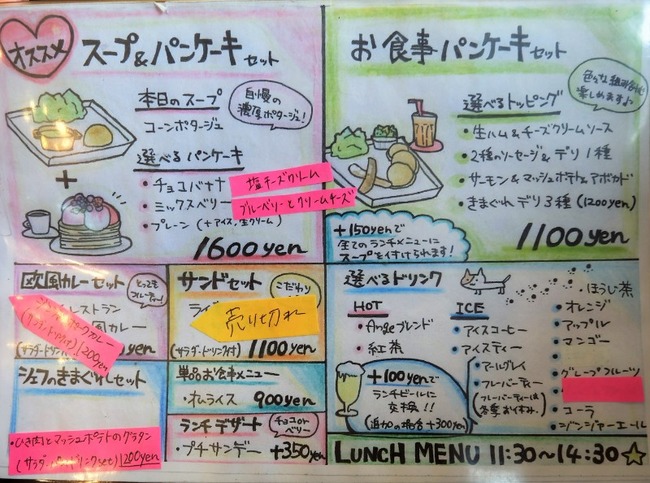 オススメ
スープ&パンケーキセット
本日のスープ
コーンポタージュ
自慢の
濃厚ポタージュ!
選べるパンケーキ
・チョコバナナ
塩チーズクリーム
・ミックスベリー
ブルーベリーとクリームチーズ
・プレーン (+アイス,生クリーム)
1600yen
お食事パンケーキセット
色々な組み合わせ
楽しめます♪
選べるトッピング
・生ハム&チーズクリームソース
・2種のソーセージ&デリ1種
・サーモン&マッシュポテト&アボカド
・きまぐれデリ3種 (1200yen)
1100yen
+150yenで
全てのランチメニューに
スープを付けられます!
欧風カレーセット
とっても
フルーティー!
レストラン
風カレー
カレー
1200yen
yen
サンドセット
こだわり
売り切れ
(サラダ・ドリンク付)
1100yen
シェフのきまぐれセット
・ひき肉とマッシュポテトのグラタン
1200yen
単品お食事メニュー
・オムライス 900yen
ランチデザート
チョコor
ベリー
・プチサンデー +350yen
選べるドリンク
HOT
・Angeブレンド
・紅茶
ICE
・アイスコーヒー
・アイスティー
・アールグレイ
・フレーバーティー
(フレーバーティーは
冬季お休み。)
・ほうじ茶
・オレンジ
・アップル
・マンゴー
グレープフルーツ
・コーラ
・ジンジャーエール
+100yenで
ランチビールに
交換!!
(追加の場合+300yen)
LUNCH MENU 11:30〜14:30☆